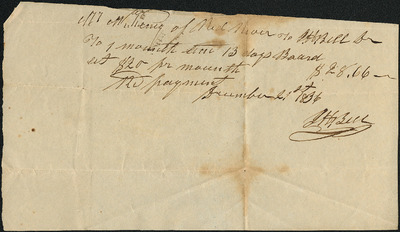 Mr McKeny of Red River to JH Bell Dr
To 1 mounth and 13 days Board
at $20 pr mounth $28.66
Recd payment
December 21st 1836
JH Bell